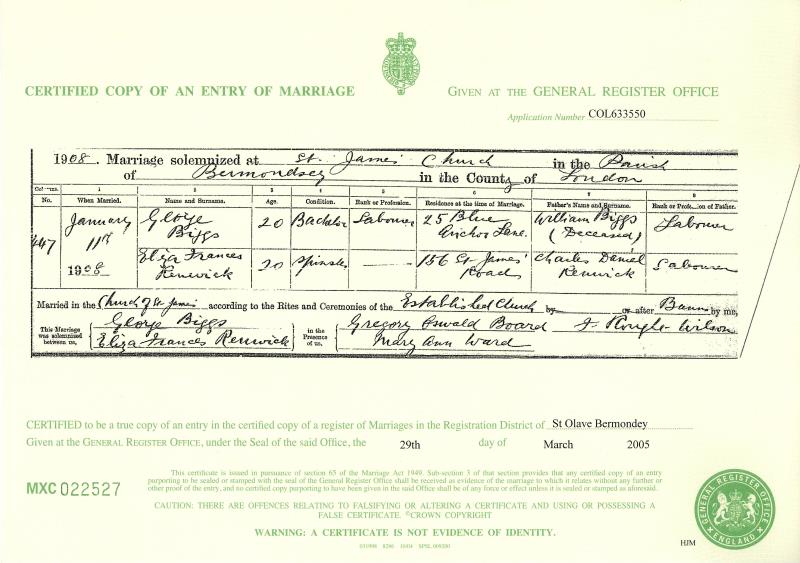 CERTIFIED COPY OF AN ENTRY OF MARRIAGE
GIVEN AT THE GENERAL REGISTER OFFICE
Application Number COL633550
1908. Marriage solemnized at St. James' Church in the Parish
of Bermondsey in the County of London
Columns. 1 2 3 4 5 6 7 8
No. When Married. Name and Surname. Age. Condition. Rank or Profession. Residence at the time of Marriage. Father's Name and Surname. Rank or Profession of Father.
447 January 11th 1908 George Biggs 20 Bachelor Labourer 25 Blue Anchor Lane. William Biggs (Deceased) Labourer
Eliza Frances Renwick 20 Spinster 156 St James' Road Charles Daniel Renwick Labourer
Married in the Church of St James according to the Rites and Ceremonies of the Established Church by or after Banns by me,
This Marriage was solemnized between us, George Biggs Eliza Frances Renwick in the Presence of us, Gregory Oswald Board Mary Ann Ward Wilson
CERTIFIED to be a true copy of an entry in the certified copy of a register of Marriages in the Registration District of St Olave Bermondey
Given at the GENERAL REGISTER OFFICE, under the Seal of the said Office, the 29th day of March 2005
This certificate is issued in pursuance of section 65 of the Marriage Act 1949. Sub-section 3 of that section provides that any certified copy of an entry
purporting to be sealed or stamped with the seal of the General Register Office shall be received as evidence of the marriage to which it relates without any further or
other proof of the entry, and no certified copy purporting to have been given in the said Office shall be of any force or effect unless it is sealed or stamped as aforesaid.
MXC 022527
CAUTION: THERE ARE OFFENCES RELATING TO FALSIFYING OR ALTERING A CERTIFICATE AND USING OR POSSESSING A
FALSE CERTIFICATE. ©CROWN COPYRIGHT
WARNING: A CERTIFICATE IS NOT EVIDENCE OF IDENTITY.
HJM
GENERAL REGISTER OFFICE
ENGLAND